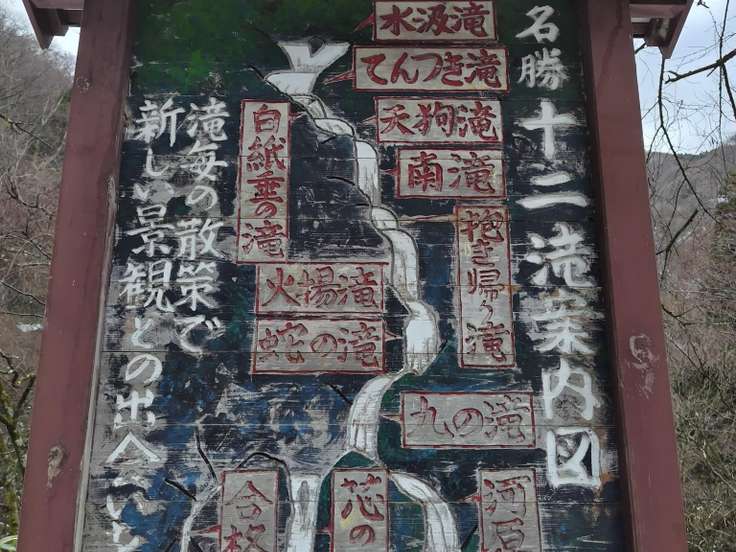 名勝 十二滝案内図
水汲滝
てんつき滝
天狗滝
南滝
抱き帰り滝
白紙垂の滝
火場滝
蛇の滝
九の滝
河原
芯の
合格
滝毎の散策で
新しい景観との出会いを